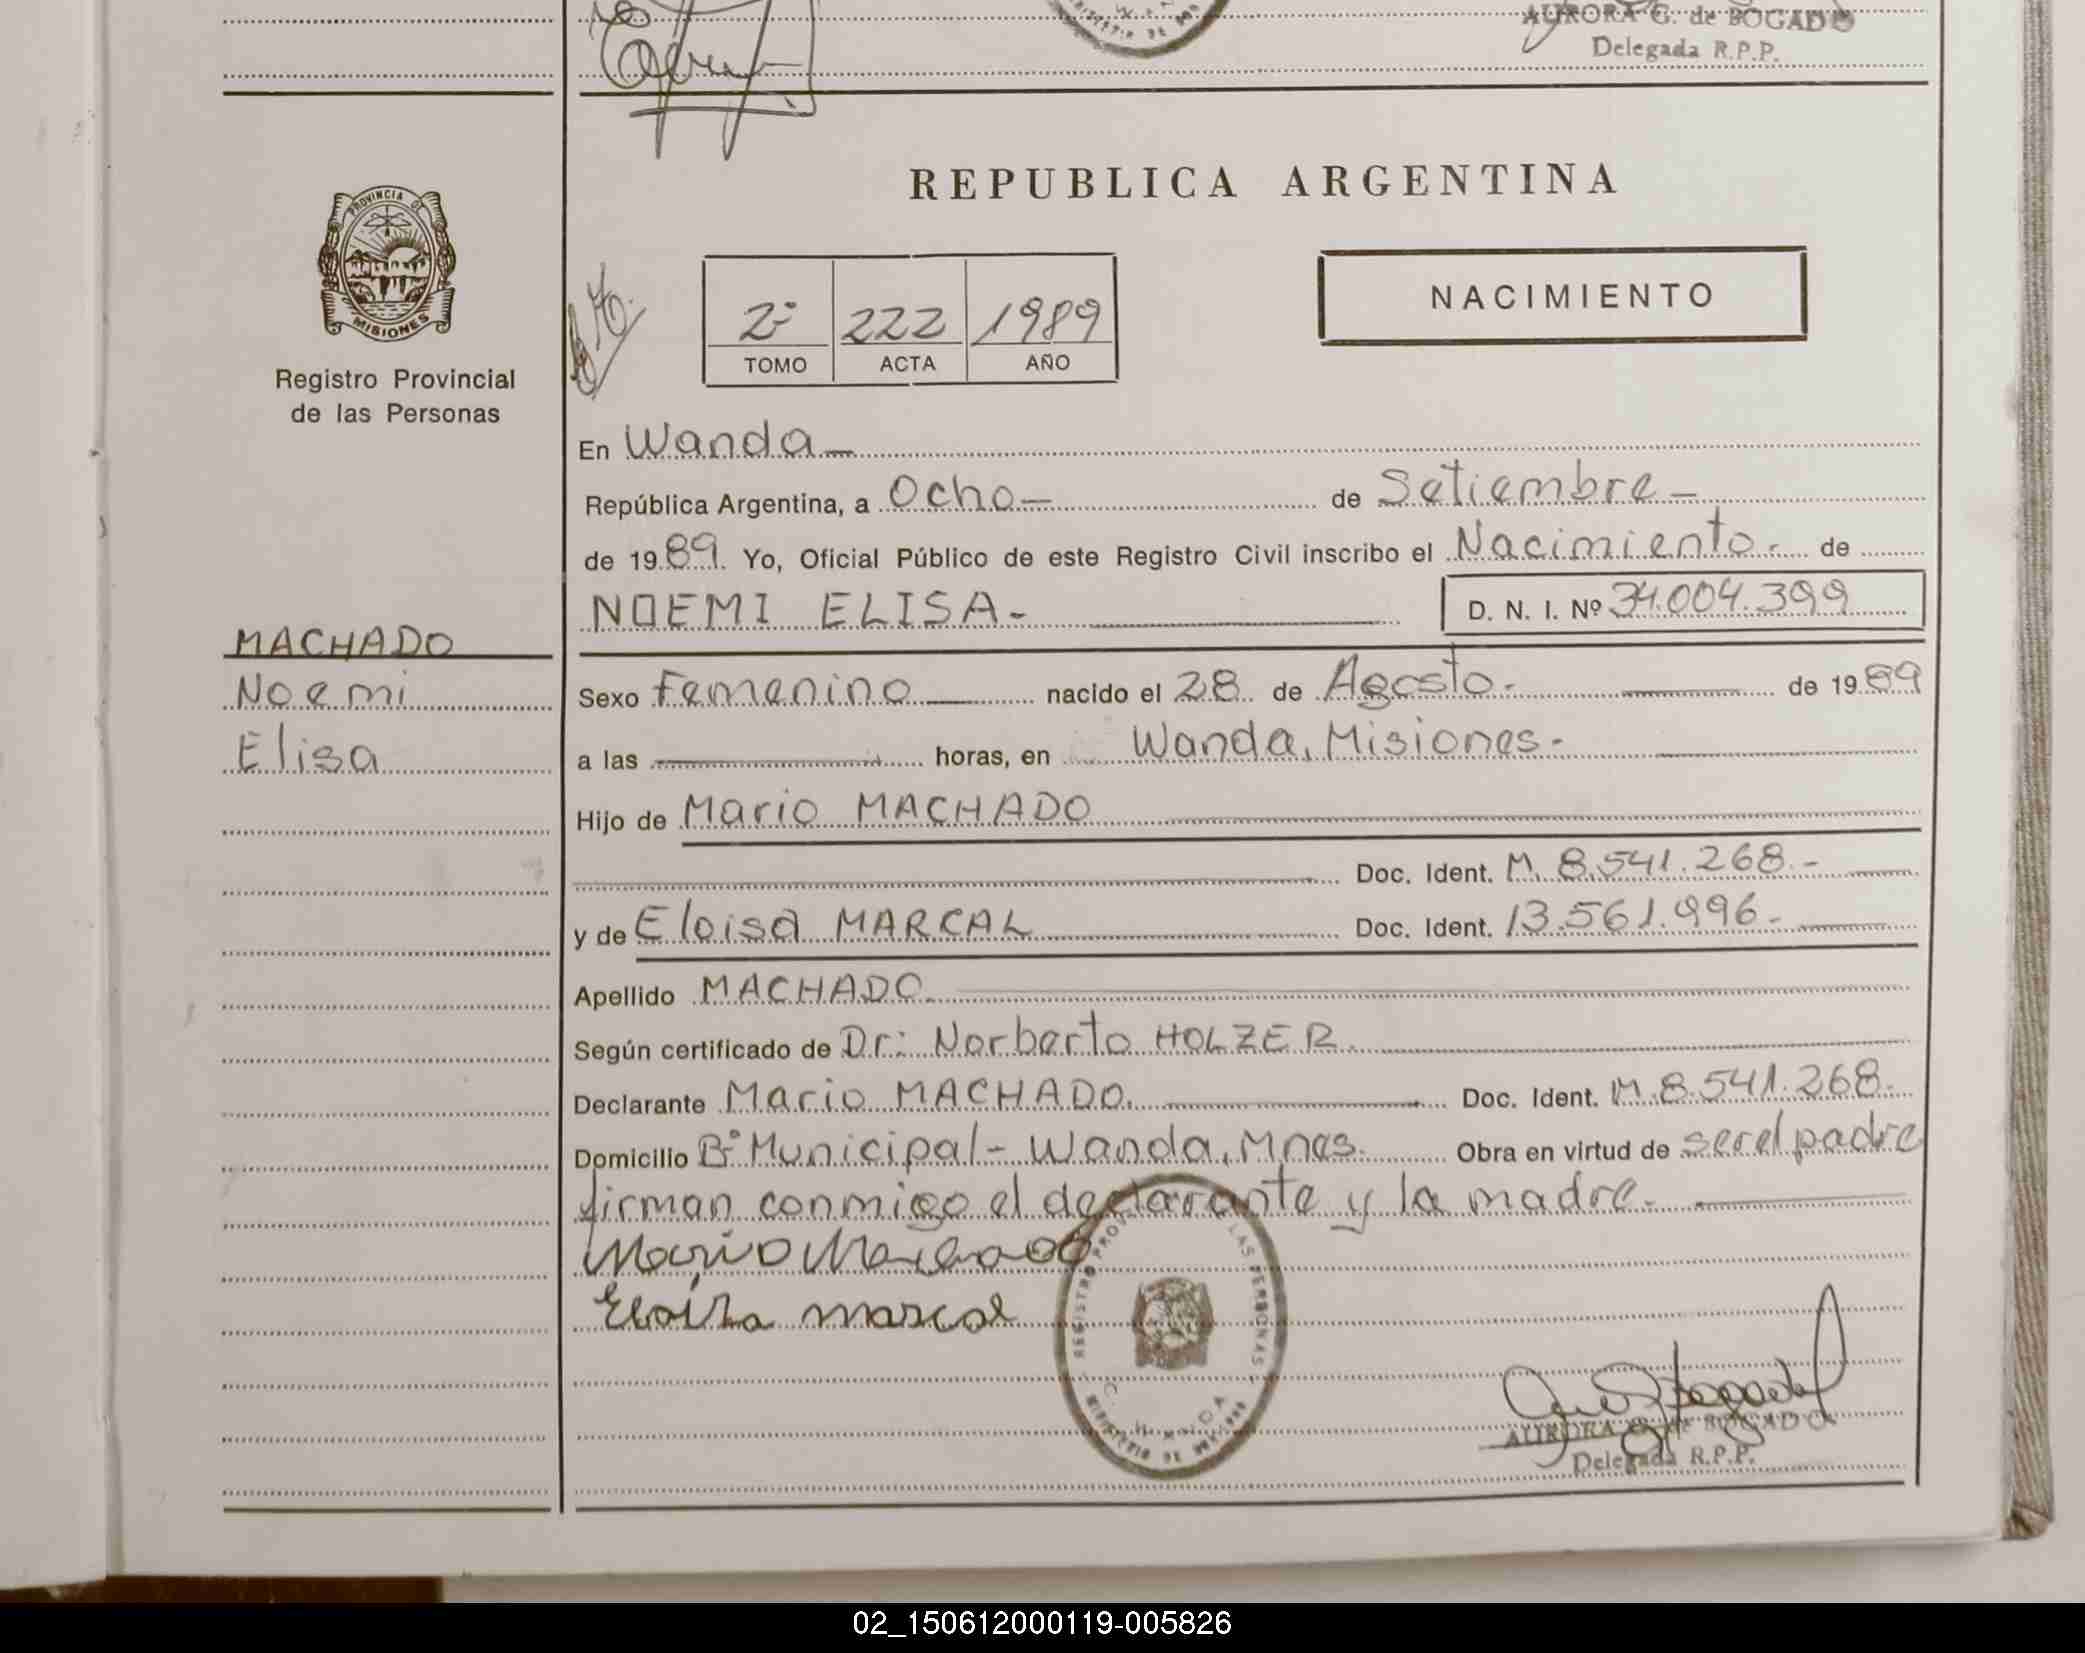 AURORA G. de BOGADO
Delegada R.P.P.
REPUBLICA ARGENTINA
PROVINCIA DE
MISIONES
Registro Provincial
de las Personas
2º 222 1989
TOMO ACTA AÑO
NACIMIENTO
En Wanda-
República Argentina, a Ocho- de Setiembre-
de 1989. Yo, Oficial Público de este Registro Civil inscribo el Nacimiento.- de
NOEMI ELISA- D. N. I. Nº 34.004.399
MACHADO
Noemi
Elisa
Sexo Femenino nacido el 28 de Agosto.- de 1989
a las horas, en Wanda, Misiones.-
Hijo de Mario MACHADO
Doc. Ident. M. 8.541.268.-
y de Eloisa MARCAL Doc. Ident. 13.561.996.-
Apellido MACHADO.
Según certificado de Dr: Norberto HOLZER.
Declarante Mario MACHADO. Doc. Ident. M.8.541.268.-
Domicilio Bº Municipal- Wanda, Mnes. Obra en virtud de ser el padre
firman conmigo el declarante y la madre.-
Mario Machado
Eloiza marcal
REGISTRO PROV LAS PERSONAS
WANDA
AURORA G. de BOGADO
Delegada R.P.P.
02_150612000119-005826